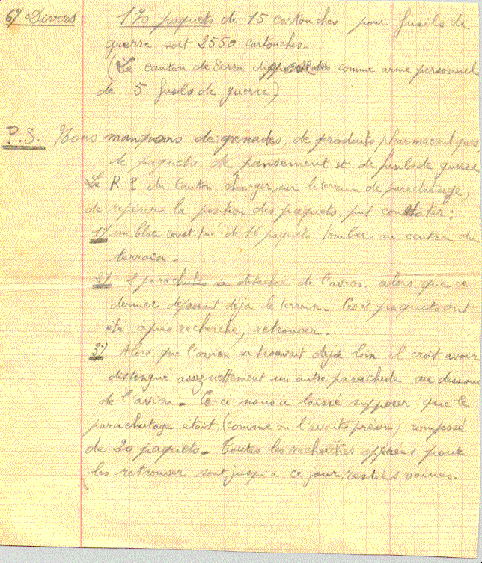 6°/ Divers 170 paquets de 15 cartouches pour fusils de
guerre soit 2550 cartouches.
(Le canton de Serm comme arme personnel
de 5 fusils de guerre)
P.S. Nous manquons de grenades, de produits pharmaceutiques
de paquets de pansement et de fusils de guerre
Le R P du canton sur le terrain de parachutage,
de repérer la position des paquets put constater:
1°/ un bloc constitué de 16 paquets tomber au centre du
terrain.
2°/ parachutes se détacher de l'avion, alors que ce
dernier déjà le terrain. Ces paquets ont
été après recherche, retrouver.
3°/ Alors que l'avion se trouvait déjà loin il croit avoir
distingué assez nettement un autre parachute au dessous
de l'avion. Ce ci nous a laissé supposer que le
parachutage était (comme on l'avait prévu) composé
de 20 paquets. Toutes les recherches pour
les retrouver sont jusqu'à ce jour restées vaines.